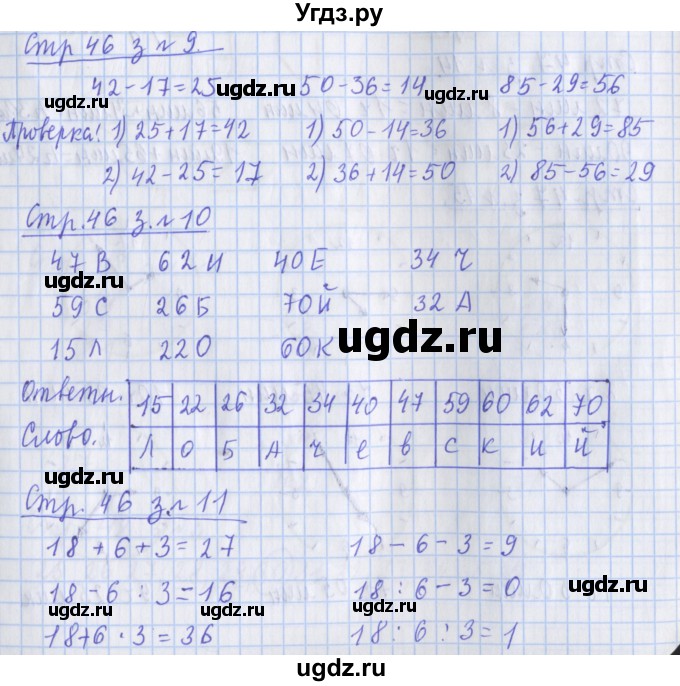 Угдз.ру
Стр 46 з № 9
42-17=25 50-36=14 85-29=56
ugdz.ru ugdz.ru ugdz.ru
Проверка! 1) 25+17=42 1) 50-14=36 1) 56+29=85
2) 42-25=17 2) 36+14=50 2) 85-56=29
ugdz.ru ugdz.ru
Стр. 46 з. № 10
47 В 62 И 40 Е 34 Ч
ugdz.ru ugdz.ru ugdz.ru
59 С 26 Б 70 Й 32 А
15 Л 22 О 60 К
ugdz.ru ugdz.ru
Ответы. 15 22 26 32 34 40 47 59 60 62 70
Слово. Л О Б А Ч е В С К И Й
ugdz.ru ugdz.ru
Стр. 46 з № 11
18+6+3=27 18-6-3=9
18-6:3=16 18:6-3=0
ugdz.ru ugdz.ru ugdz.ru
18+6·3=36 18:6:3=1
ugdz.ru